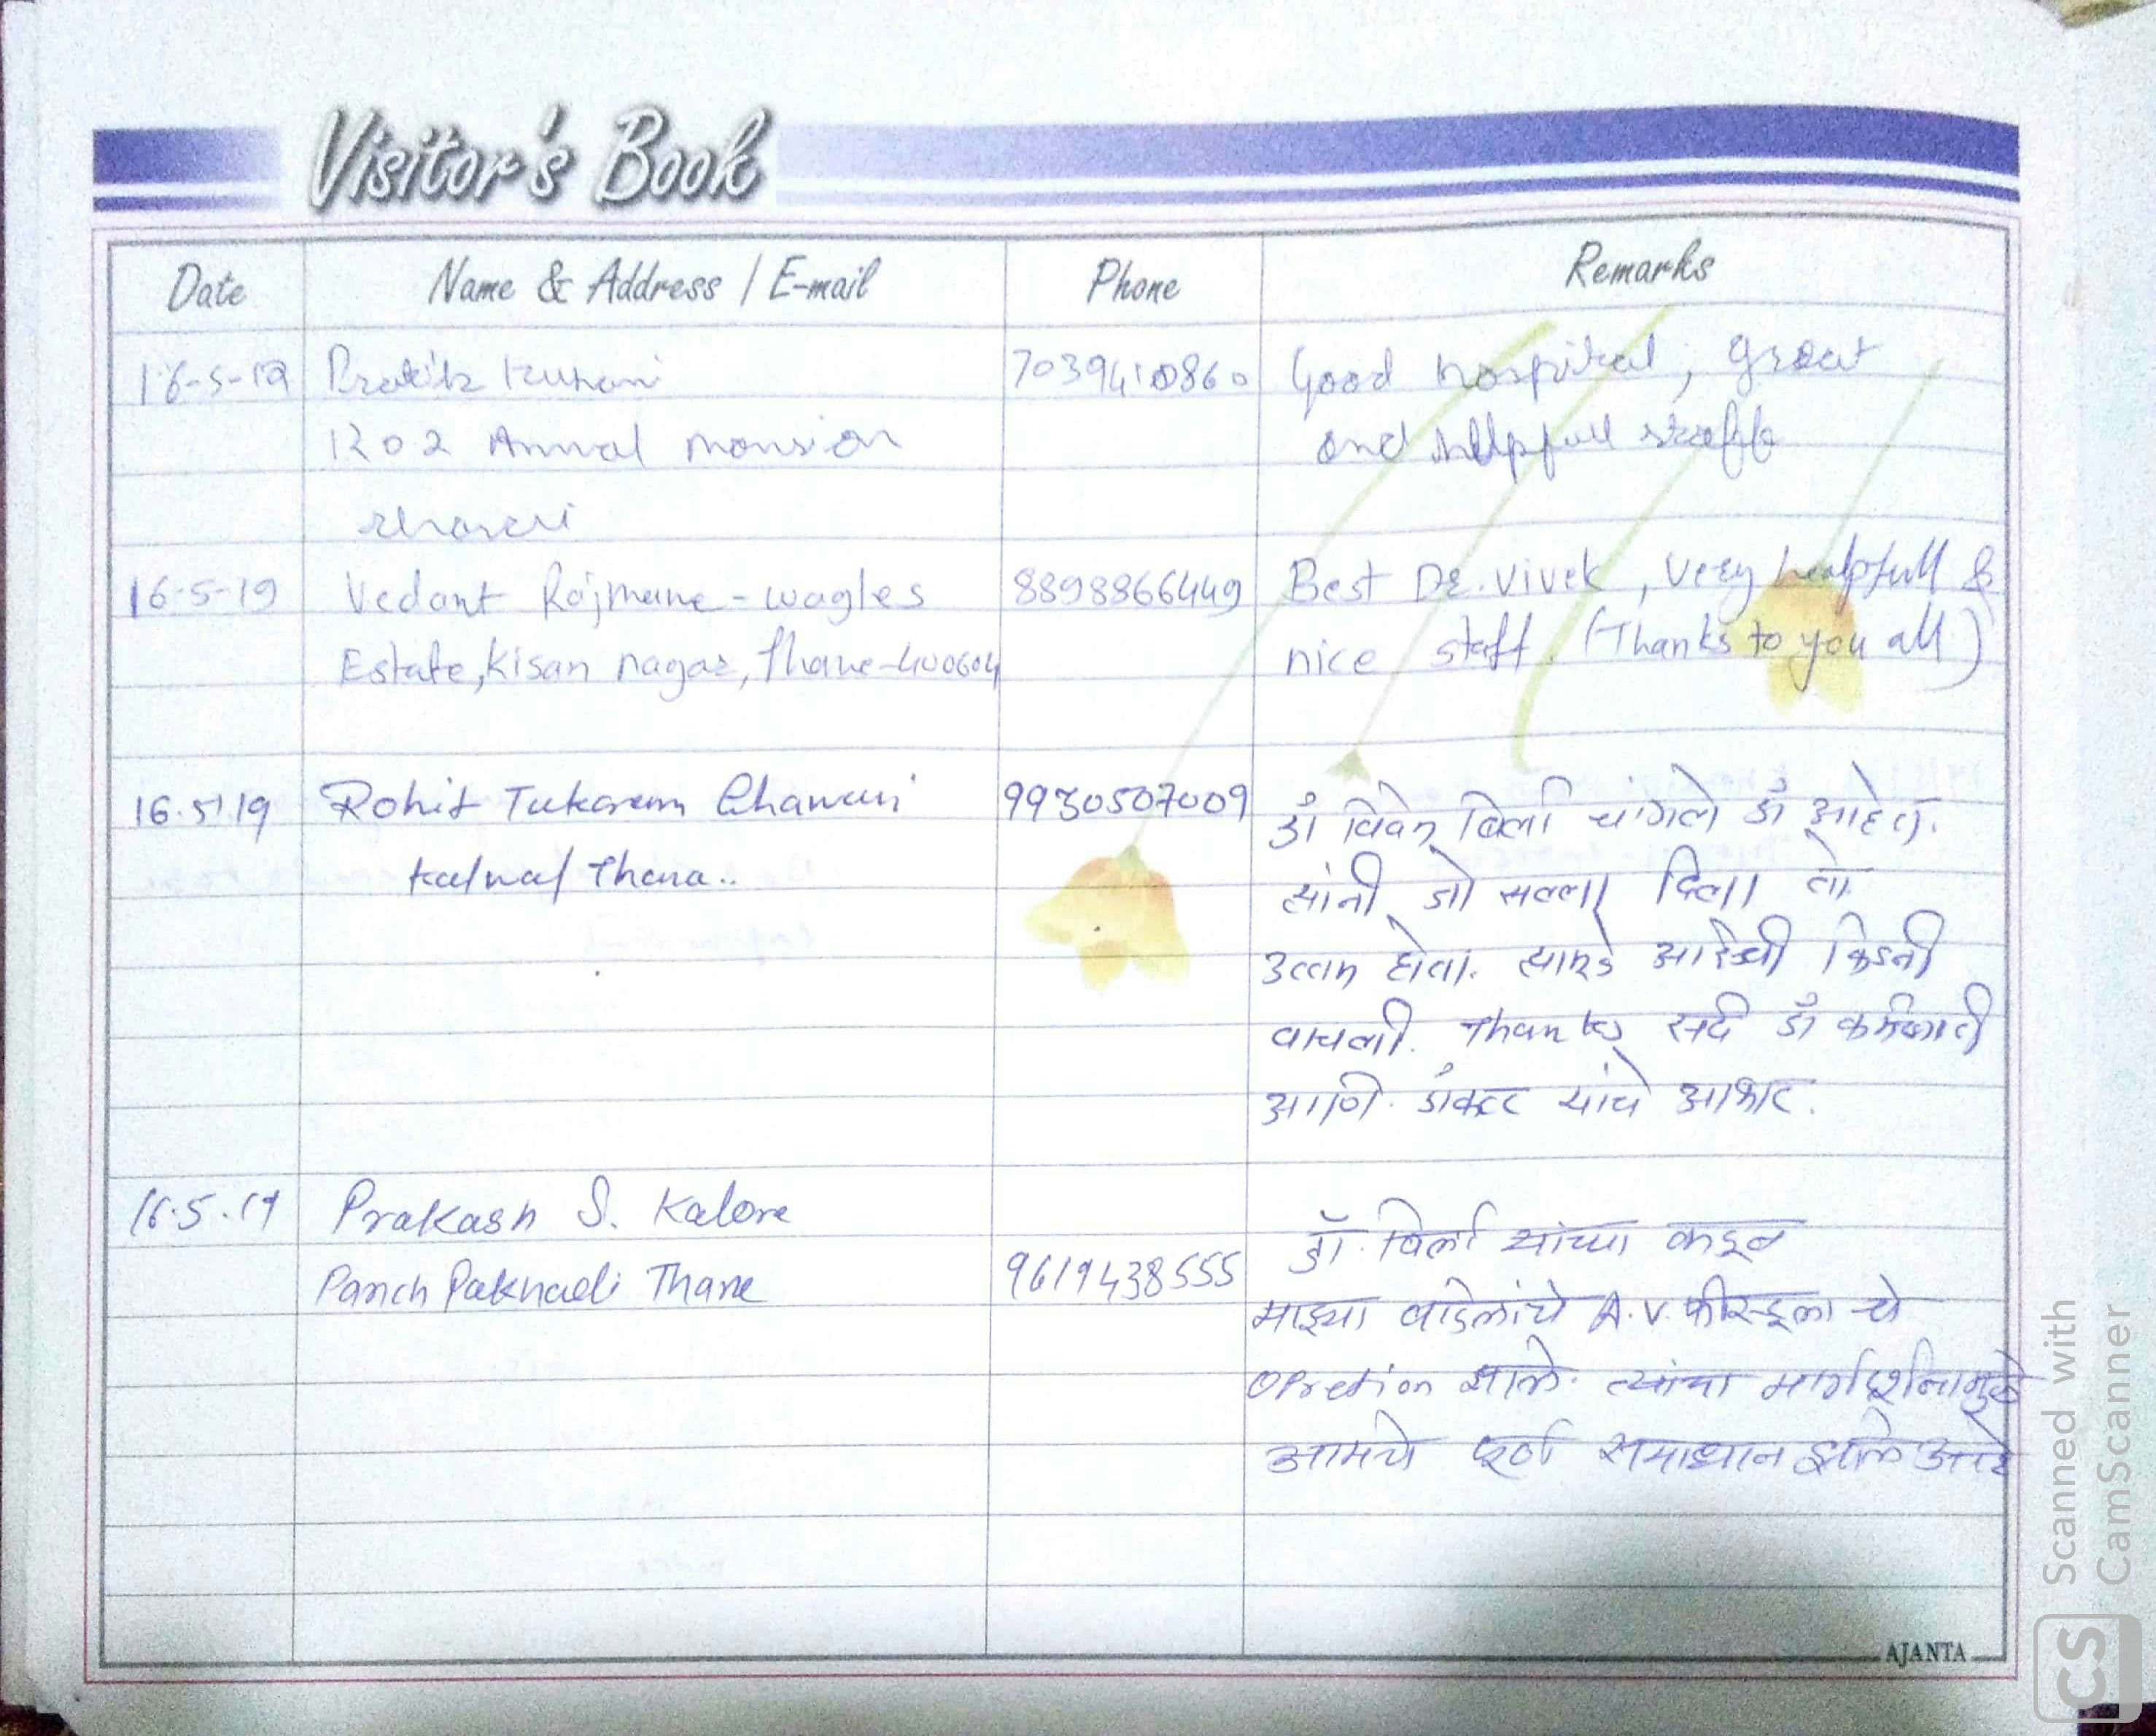 Visitor's Book
Date Name & Address / E-mail Phone Remarks
16-5-19 Pratik 7039410860 Good hospital, great
1202 mansion and helpfull staff
16-5-19 Vedant Rajmane - wagles 8898866449 Best DR. Vivek, very healpfull &
Estate, Kisan nagar, Thane-400604 nice staff. (Thanks to you all)
16.5.19 Rohit Tukaram 9930507009 डॉ बिर्ला चांगले डॉ आहेत.
Thana.. यांनी जो सल्ला दिला तो
होता. किडनी
वाचली. Thanks सर्व डॉ कर्मचारी
आणि डॉक्टर यांचे आभार.
16.5.19 Prakash S. Kalore डॉ. बिर्ला यांच्या कडून
Panch Pakhadi Thane 9619438555 माझ्या वडिलांचे A.V. फीस्टूला चे
Opretion झाले. त्यांचा मार्गदर्शनामुळे
आमचे पूर्ण समाधान झाले आहे
AJANTA
Scanned with
CamScanner
CS